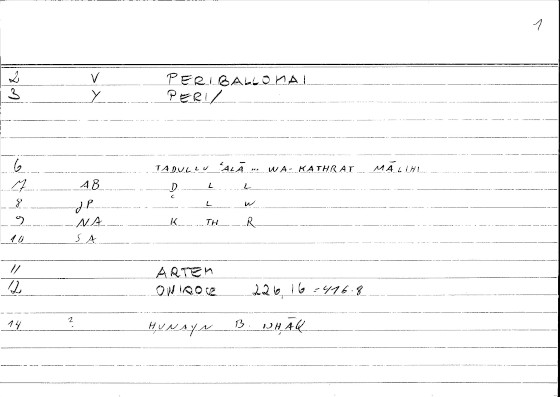 1
2 V PERIBALLOMAI
3 Y PERI/
6 TADULLU ʿALĀ ... WA-KATHRAT MĀLIHI
7 AB D L L
8 JP ʿ L W
9 NA K TH R
10 SA
11 ARTEM
12 ONIROC 226,16 = 416.8
14 ? ḤUNAYN B. ISḤĀQ